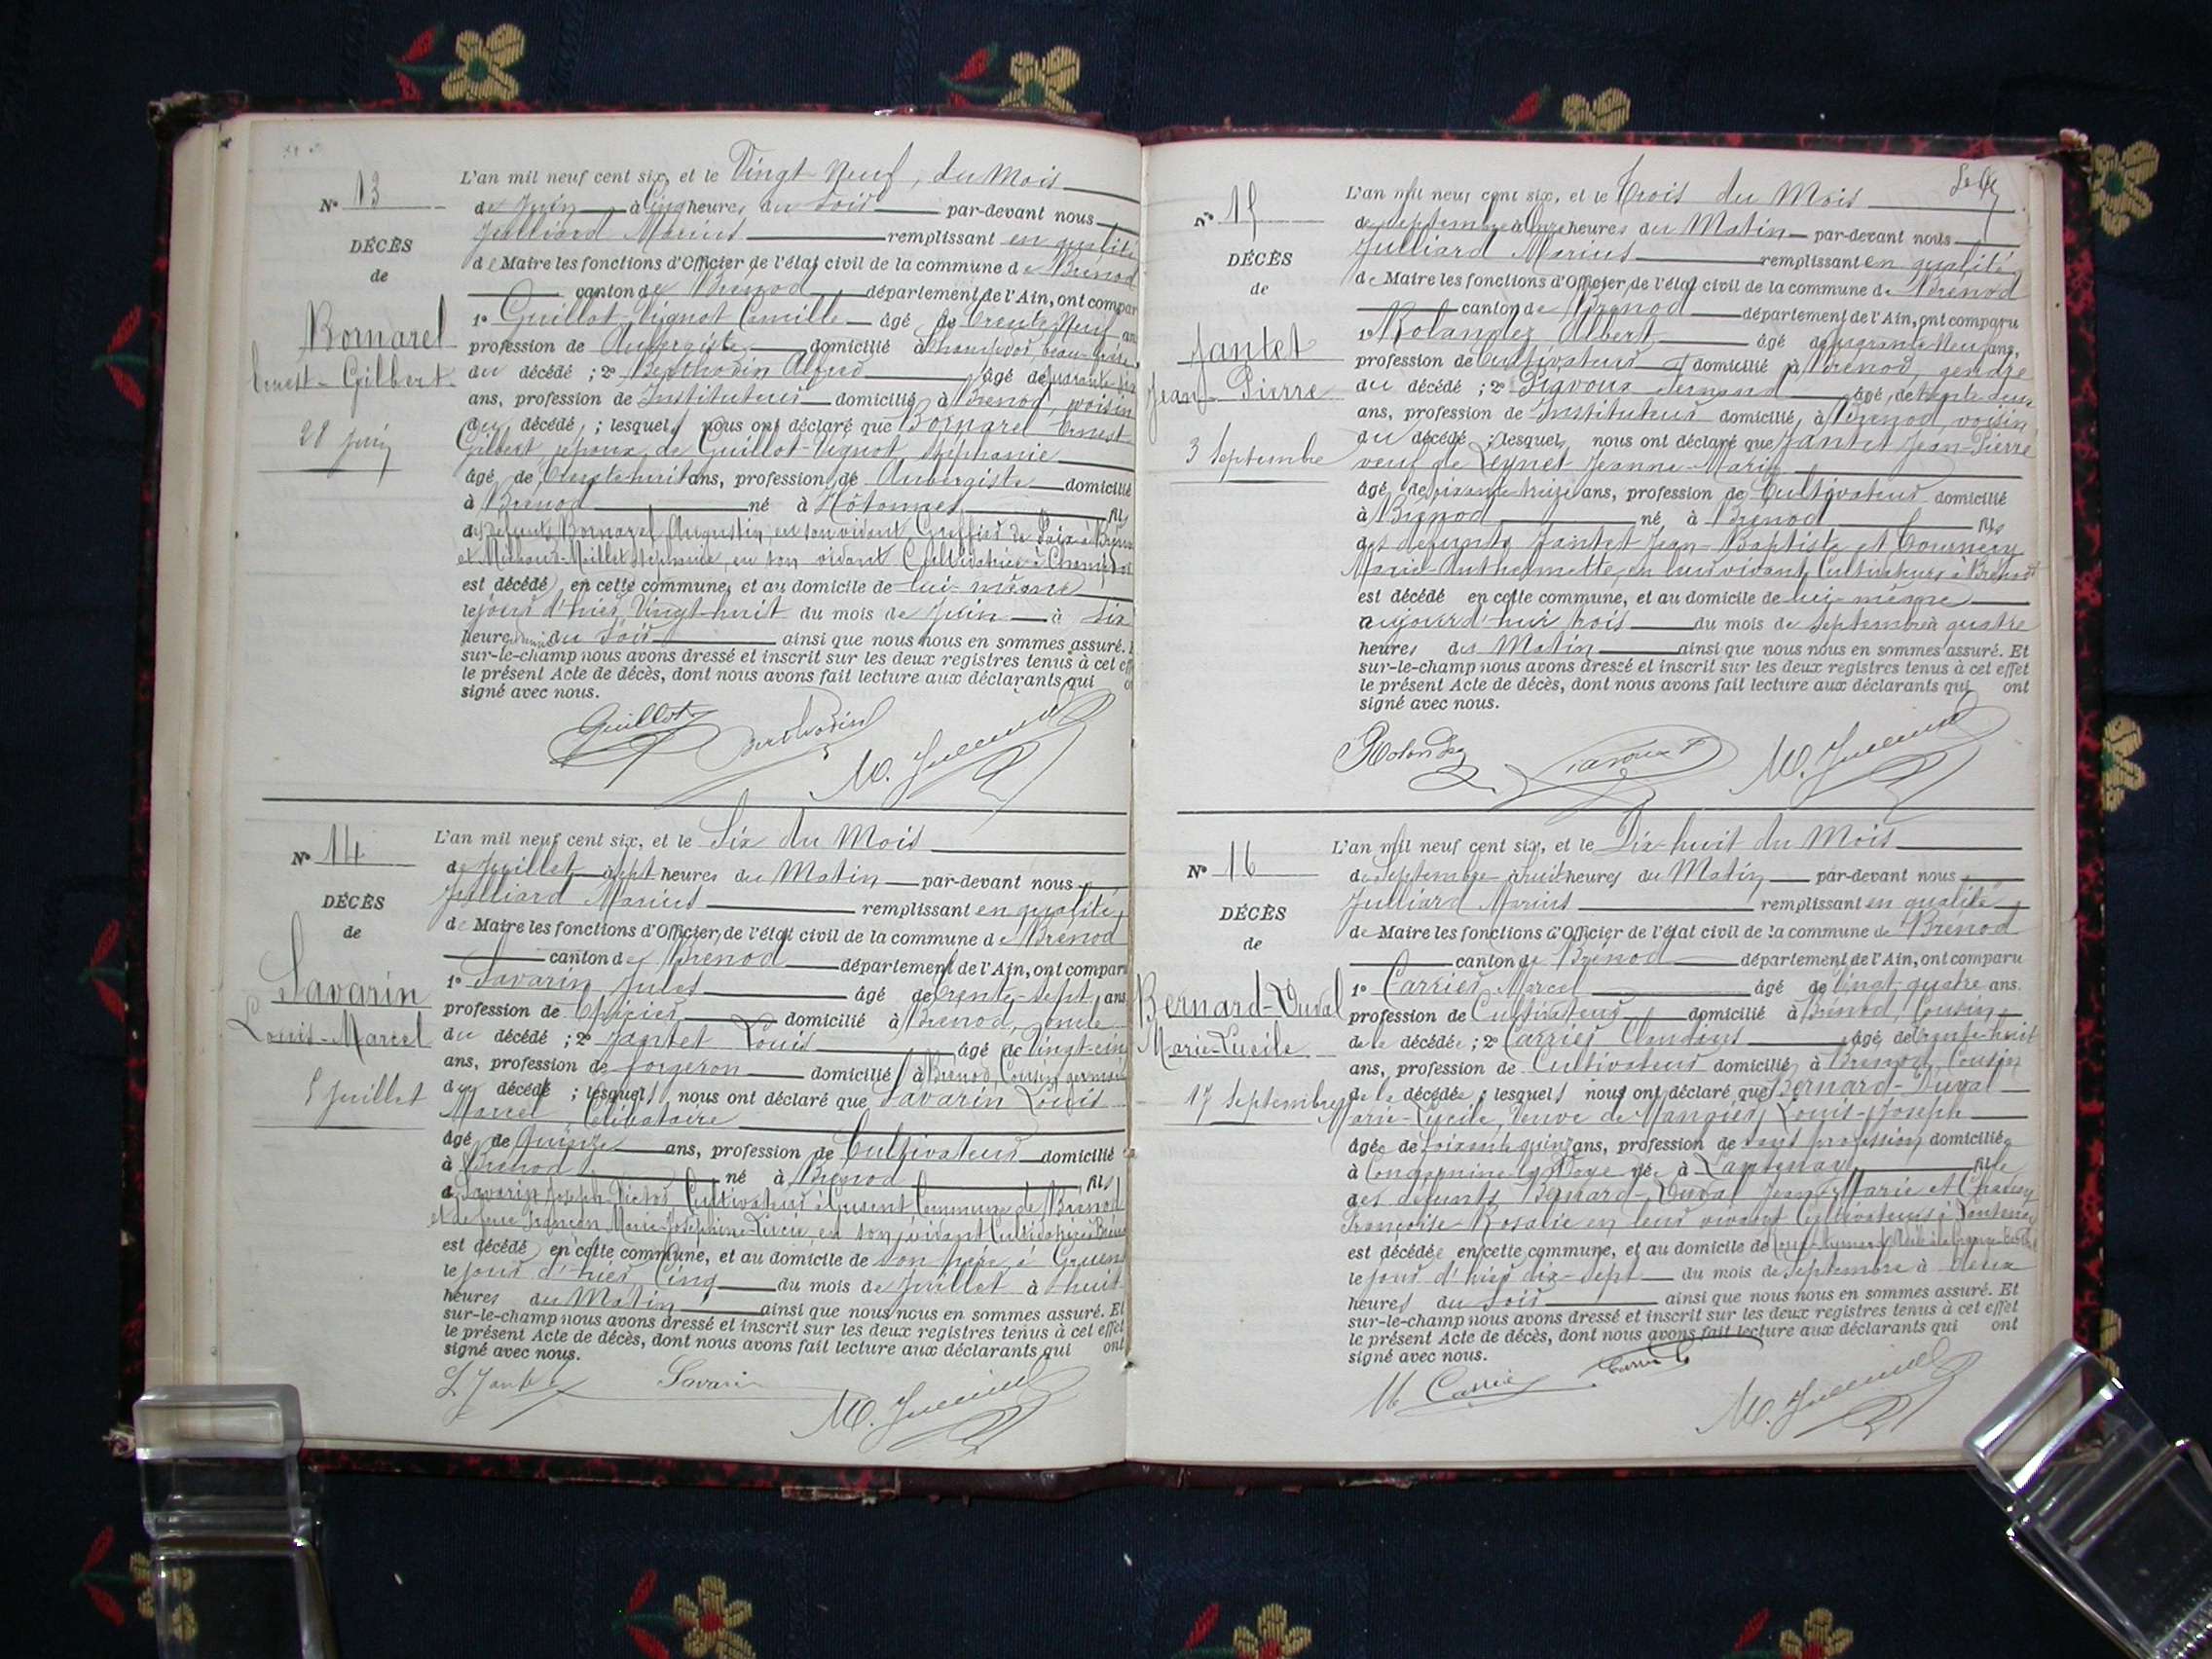 N° 13
DÉCÈS
de
Bornarel
Ernest-Gilbert
28 Juin
L'an mil neuf cent six, et le Vingt Neuf, du Mois
de Juin à Cinq heures du Soir par-devant nous
Julliard Marius remplissant en qualité
de Maire les fonctions d'Officier de l'état civil de la commune de Brénod
canton de Brénod département de l'Ain, ont compar
1° Guillot-Vignot Camille âgé de Trente Neuf ans
profession de Aubergiste domicilié à Champdor beau-frère
du décédé ; 2° Berthodin Alfred âgé de quarante-six
ans, profession de Instituteur domicilié à Brénod, voisin
du décédé ; lesquels nous ont déclaré que Bornarel Ernest
Gilbert, époux de Guillot-Vignot Stéphanie
âgé de trente huit ans, profession de Aubergiste domicilié
à Brénod né à Hotonnes fils
des défunts Bornarel Augustin, en son vivant Greffier de Paix à Brénod
et Stéphanie, en son vivant Cultivatrice à Champdor
est décédé en cette commune, et au domicile de lui-même
le jour d'hier, Vingt-huit du mois de Juin à Six
heures du Soir ainsi que nous nous en sommes assuré.
sur-le-champ nous avons dressé et inscrit sur les deux registres tenus à cet eff
le présent Acte de décès, dont nous avons fait lecture aux déclarants qui
signé avec nous.
Guillot Berthodin
M. Julliard
N° 14
DÉCÈS
de
Savarin
Louis-Marcel
5 Juillet
L'an mil neuf cent six, et le Six du Mois
de Juillet à Sept heures du Matin par-devant nous
Julliard Marius remplissant en qualité
de Maire les fonctions d'Officier de l'état civil de la commune de Brénod
canton de Brénod département de l'Ain, ont comparu
1° Savarin Jules âgé de Trente-sept ans
profession de Epicier domicilié à Brénod, oncle
du décédé ; 2° Jantet Louis âgé de Vingt-cinq
ans, profession de forgeron domicilié à Brénod, Cousin germain
du décédé ; lesquels nous ont déclaré que Savarin Louis
Marcel Célibataire
âgé de Quinze ans, profession de Cultivateur domicilié
à Brénod né à Brénod fils
de Savarin Joseph-Victor, Cultivateur à Commune de Brénod
et de feue Marie-Joséphine en son vivant Cultivatrice à Brénod
est décédé en cette commune, et au domicile de son père, à
le jour d'hier Cinq du mois de Juillet à huit
heures du Matin ainsi que nous nous en sommes assuré. Et
sur-le-champ nous avons dressé et inscrit sur les deux registres tenus à cet effet
le présent Acte de décès, dont nous avons fait lecture aux déclarants qui ont
signé avec nous.
L Jantet Savarin
M. Julliard
N° 15
DÉCÈS
de
Jantet
Jean-Pierre
3 Septembre
L'an mil neuf cent six, et le Trois du Mois
de Septembre à Onze heures du Matin par-devant nous
Julliard Marius remplissant en qualité
de Maire les fonctions d'Officier de l'état civil de la commune de Brénod
canton de Brénod département de l'Ain, ont comparu
1° Rolandez Albert âgé de quarante Neuf ans,
profession de Cultivateur domicilié à Brénod, gendre
du décédé ; 2° Fernand âgé de trente deux
ans, profession de Instituteur domicilié à Brénod, voisin
du décédé ; lesquels nous ont déclaré que Jantet Jean-Pierre
veuf de Leynet Jeanne-Marie
âgé de soixante treize ans, profession de Cultivateur domicilié
à Brénod né à Brénod fils
des défunts Jantet Jean-Baptiste et
Marie-Anthelmette, en leur vivant Cultivateurs à Brénod
est décédé en cette commune, et au domicile de lui-même
aujourd'hui trois du mois de Septembre à quatre
heures du Matin ainsi que nous nous en sommes assuré. Et
sur-le-champ nous avons dressé et inscrit sur les deux registres tenus à cet effet
le présent Acte de décès, dont nous avons fait lecture aux déclarants qui ont
signé avec nous.
Rolandez
M. Julliard
N° 16
DÉCÈS
de
Bernard-Duval
Marie-Lucile
17 Septembre
L'an mil neuf cent six, et le Dix-huit du Mois
de Septembre à huit heures du Matin par-devant nous
Julliard Marius remplissant en qualité
de Maire les fonctions d'Officier de l'état civil de la commune de Brénod
canton de Brénod département de l'Ain, ont comparu
1° Carrier Marcel âgé de Vingt quatre ans.
profession de Cultivateur domicilié à Brénod, Cousin
de la décédée ; 2° Carrier Claudius âgé de trente-huit
ans, profession de Cultivateur domicilié à Brénod, Cousin
de la décédée ; lesquels nous ont déclaré que Bernard-Duval
Marie-Lucile, Veuve de Mangier, Louis-Joseph
âgée de Soixante quinze ans, profession de sans profession domiciliée
à née à Lantenay fille
des défunts Bernard-Duval Jean-Marie et
Françoise-Rosalie en leur vivant Cultivateurs à Lantenay
est décédée en cette commune, et au domicile de
le jour d'hier dix-sept du mois de Septembre à deux
heures du Soir ainsi que nous nous en sommes assuré. Et
sur-le-champ nous avons dressé et inscrit sur les deux registres tenus à cet effet
le présent Acte de décès, dont nous avons fait lecture aux déclarants qui ont
signé avec nous.
M Carrier Carrier C
M. Julliard